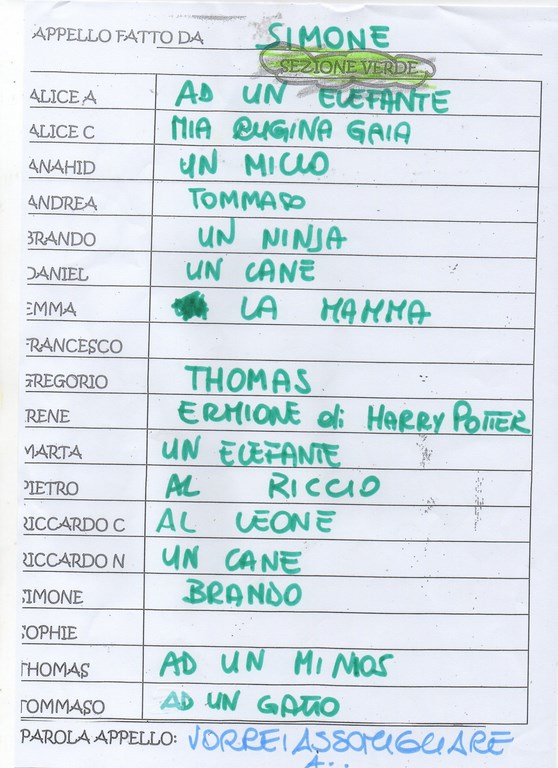 APPELLO FATTO DA SIMONE
SEZIONE VERDE
ALICE A AD UN ELEFANTE
ALICE C MIA CUGINA GAIA
ANAHID UN MICIO
ANDREA TOMMASO
BRANDO UN NINJA
DANIEL UN CANE
EMMA LA MAMMA
FRANCESCO
GREGORIO THOMAS
IRENE ERMIONE di HARRY POTTER
MARTA UN ELEFANTE
PIETRO AL RICCIO
RICCARDO C AL LEONE
RICCARDO N UN CANE
SIMONE BRANDO
SOPHIE
THOMAS AD UN MINIOS
TOMMASO AD UN GATTO
PAROLA APPELLO: VORREI ASSOMIGLIARE
A..